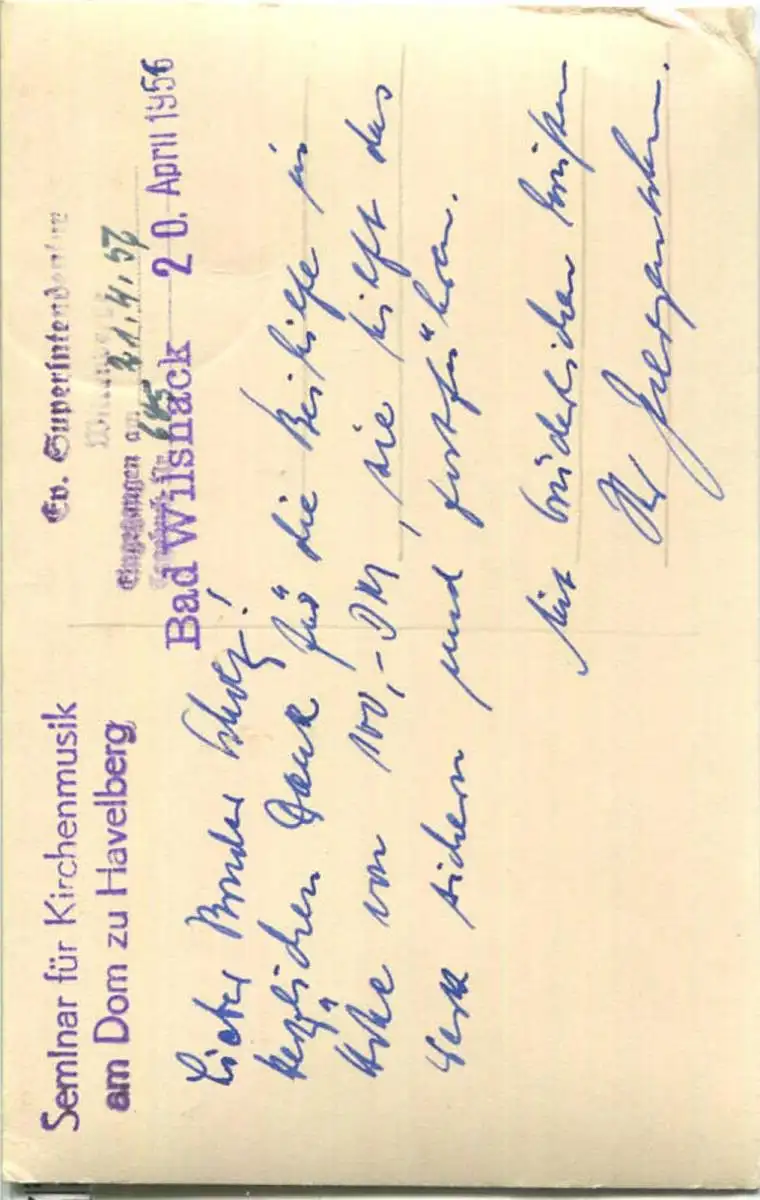 Seminar für Kirchenmusik
am Dom zu Havelberg
Ev. Superintendentur
Eingegangen am 21.4.57
Bad Wilsnack 20. April 1956
Lieber Bruder Scholz!
herzlichen Dank für die Beihilfe in
Höhe von 100,- DM, sie hilft das
Werk sichern und fortführen.
Mit brüderlichen Grüßen
Ihr